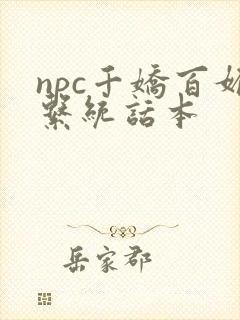 npc千嬌百媚
繫統話本
岳家郡